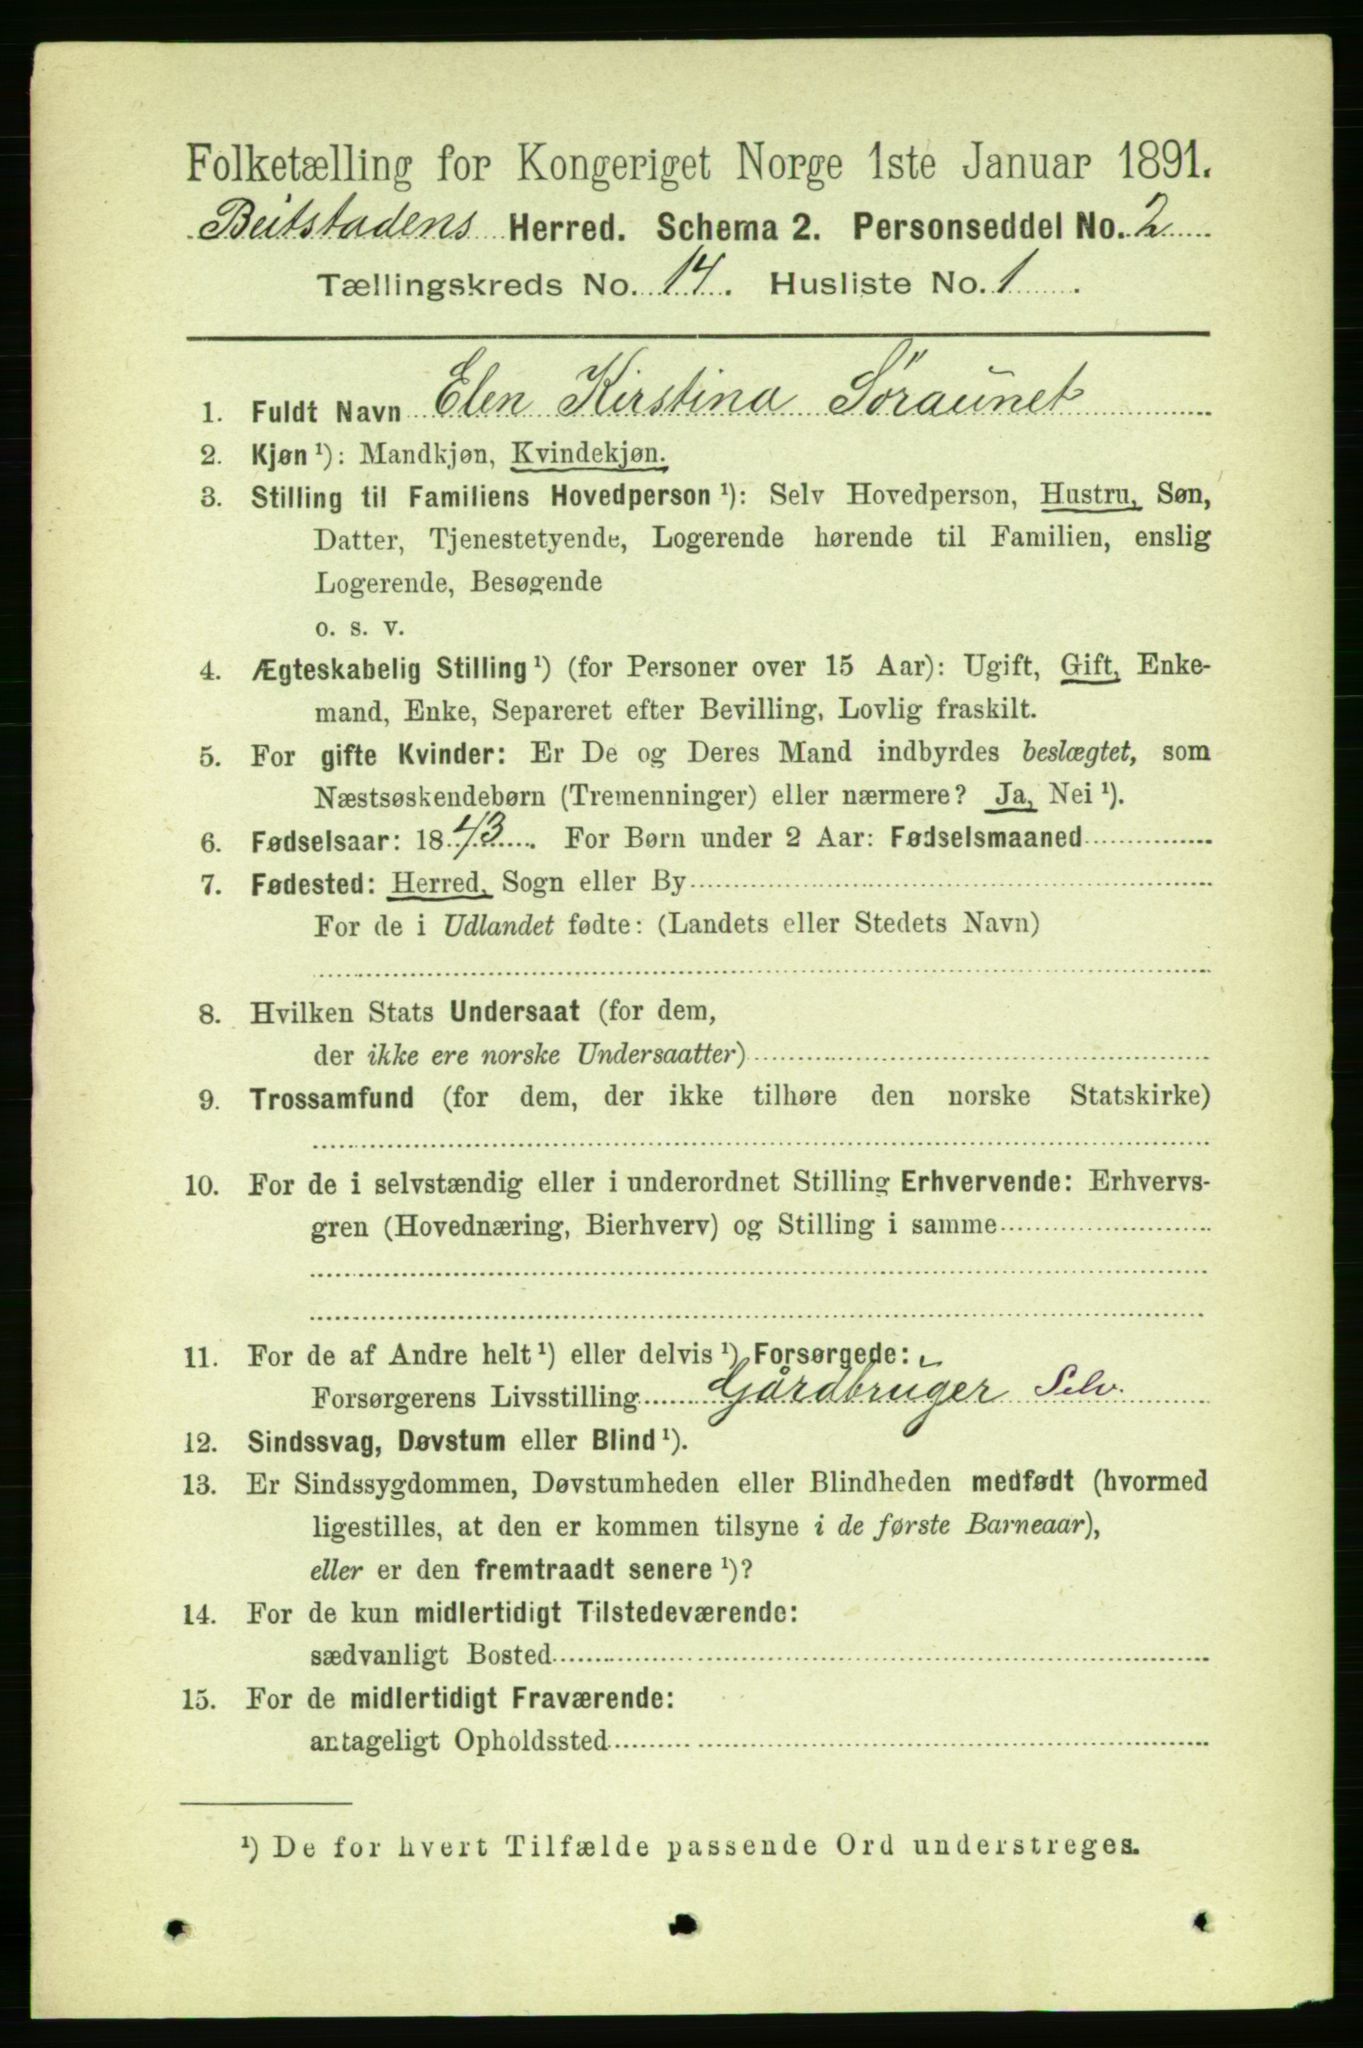 Folketælling for Kongeriget Norge 1ste Januar 1891.
Beitstadens Herred. Schema 2. Personseddel No. 2
Tællingskreds No. 14. Husliste No. 1.
1. Fuldt Navn Elen Kirstina Søraunet
2. Kjøn ¹): Mandkjøn, Kvindekjøn.
3. Stilling til Familiens Hovedperson ¹): Selv Hovedperson, Hustru, Søn,
Datter, Tjenestetyende, Logerende hørende til Familien, enslig
Logerende, Besøgende
o. s. v.
4. Ægteskabelig Stilling ¹) (for Personer over 15 Aar): Ugift, Gift, Enke-
mand, Enke, Separeret efter Bevilling, Lovlig fraskilt.
5. For gifte Kvinder: Er De og Deres Mand indbyrdes beslægtet, som
Næstsøskendebørn (Tremenninger) eller nærmere? Ja, Nei ¹).
6. Fødselsaar: 1843. For Børn under 2 Aar: Fødselsmaaned
7. Fødested: Herred, Sogn eller By
For de i Udlandet fødte: (Landets eller Stedets Navn)
8. Hvilken Stats Undersaat (for dem,
der ikke ere norske Undersaatter)
9. Trossamfund (for dem, der ikke tilhøre den norske Statskirke)
10. For de i selvstændig eller i underordnet Stilling Erhvervende: Erhvervs-
gren (Hovednæring, Bierhverv) og Stilling i samme
11. For de af Andre helt ¹) eller delvis ¹) Forsørgede:
Forsørgerens Livsstilling Gårdbruger Selv.
12. Sindssvag, Døvstum eller Blind ¹).
13. Er Sindssygdommen, Døvstumheden eller Blindheden medfødt (hvormed
ligestilles, at den er kommen tilsyne i de første Barneaar),
eller er den fremtraadt senere ¹)?
14. For de kun midlertidigt Tilstedeværende:
sædvanligt Bosted
15. For de midlertidigt Fraværende:
antageligt Opholdssted
¹) De for hvert Tilfælde passende Ord understreges.